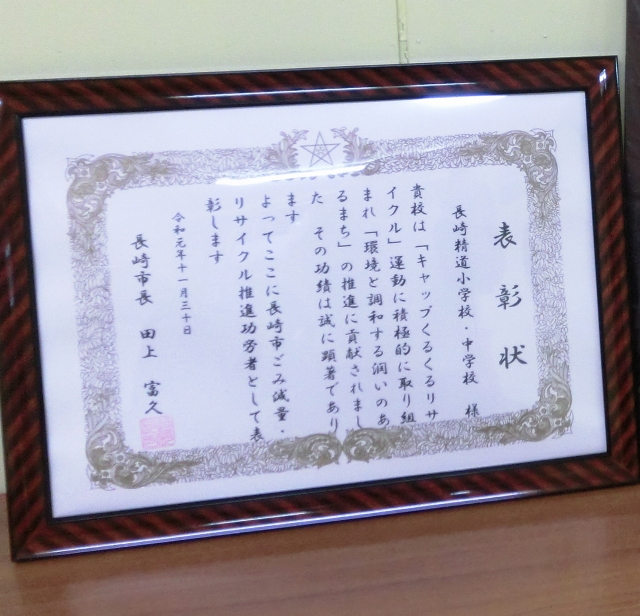 表彰状
長崎精道小学校・中学校 様
貴校は「キャップくるくるリサ
イクル」運動に積極的に取り組
まれ「環境と調和する潤いのあ
るまち」の推進に貢献されまし
た その功績は誠に顕著であり
ます
よってここに長崎市ごみ減量・
リサイクル推進功労者として表
彰します
令和元年十一月三十日
長崎市長 田上 富久